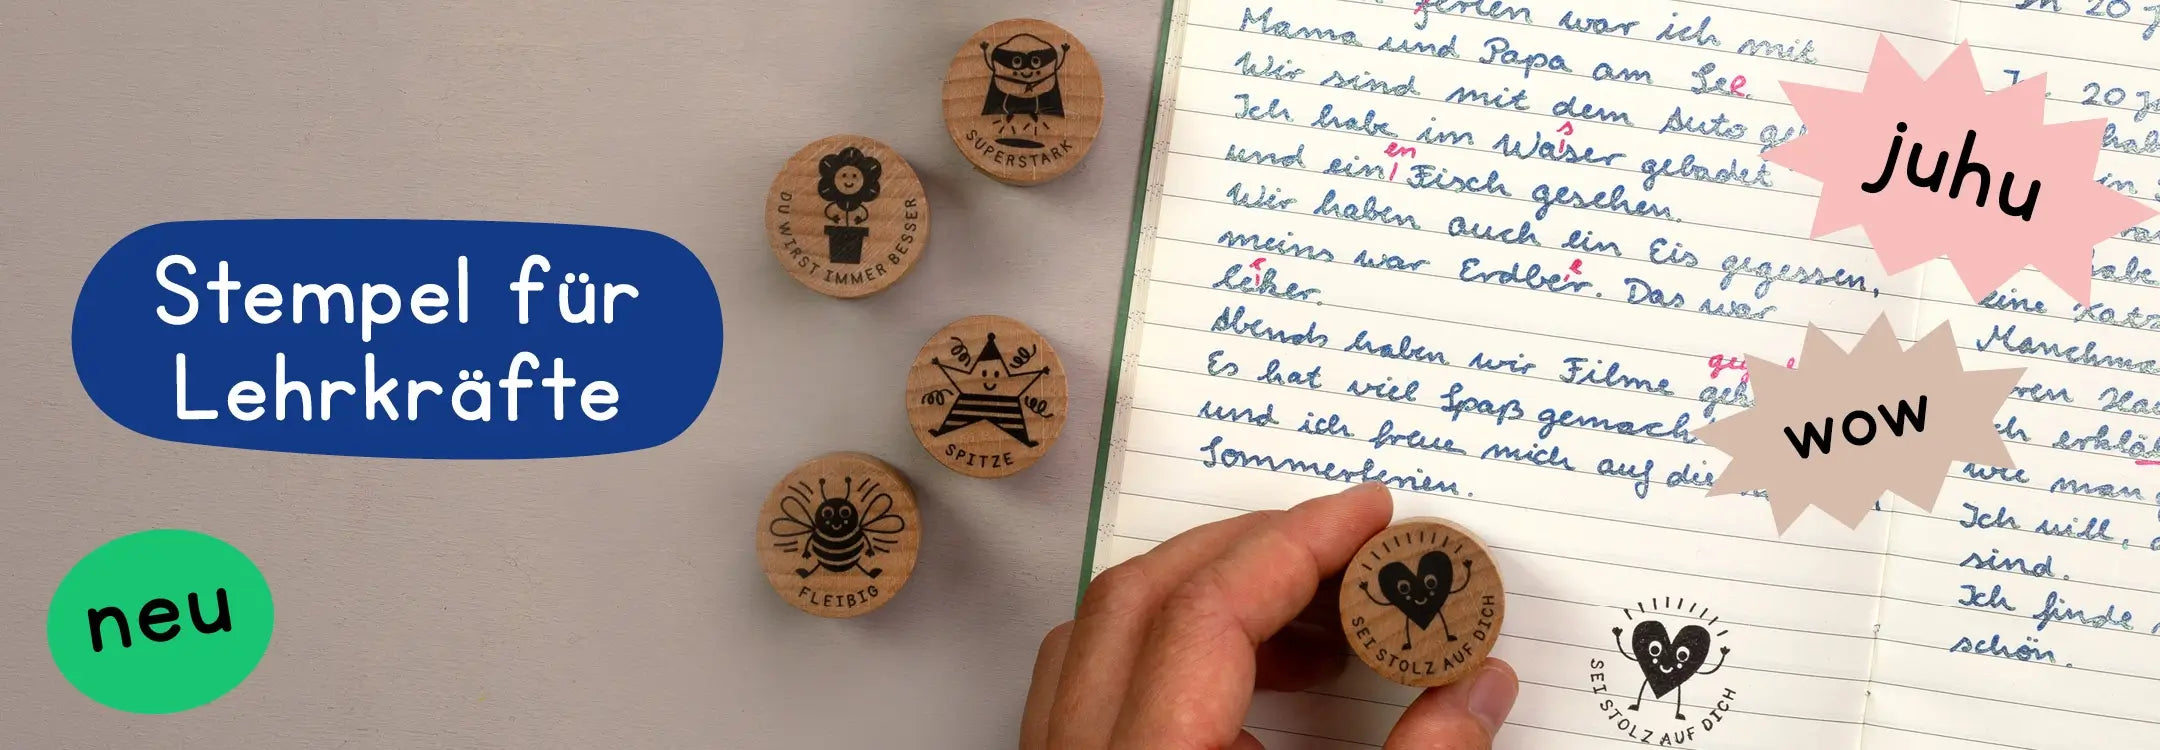 Stempel für
Lehrkräfte
neu
SUPERSTARK
DU WIRST IMMER BESSER
SPITZE
FLEIßIG
SEI STOLZ AUF DICH
ferien war ich mit
Mama und Papa am See.
Wir sind mit dem Auto
Ich habe im Waser gebadet
s
und ein Fisch gesehen.
en
Wir haben auch ein Eis gegessen,
meins war Erdber. Das war
e
leker.
c
Abends haben wir Filme
Es hat viel Spaß gemach
und ich freue mich auf die
Sommerferien.
SEI STOLZ AUF DICH
juhu
wow
20
20
eine
Manchma
ch erklä
wie man
Ich will,
sind.
Ich finde
schön.